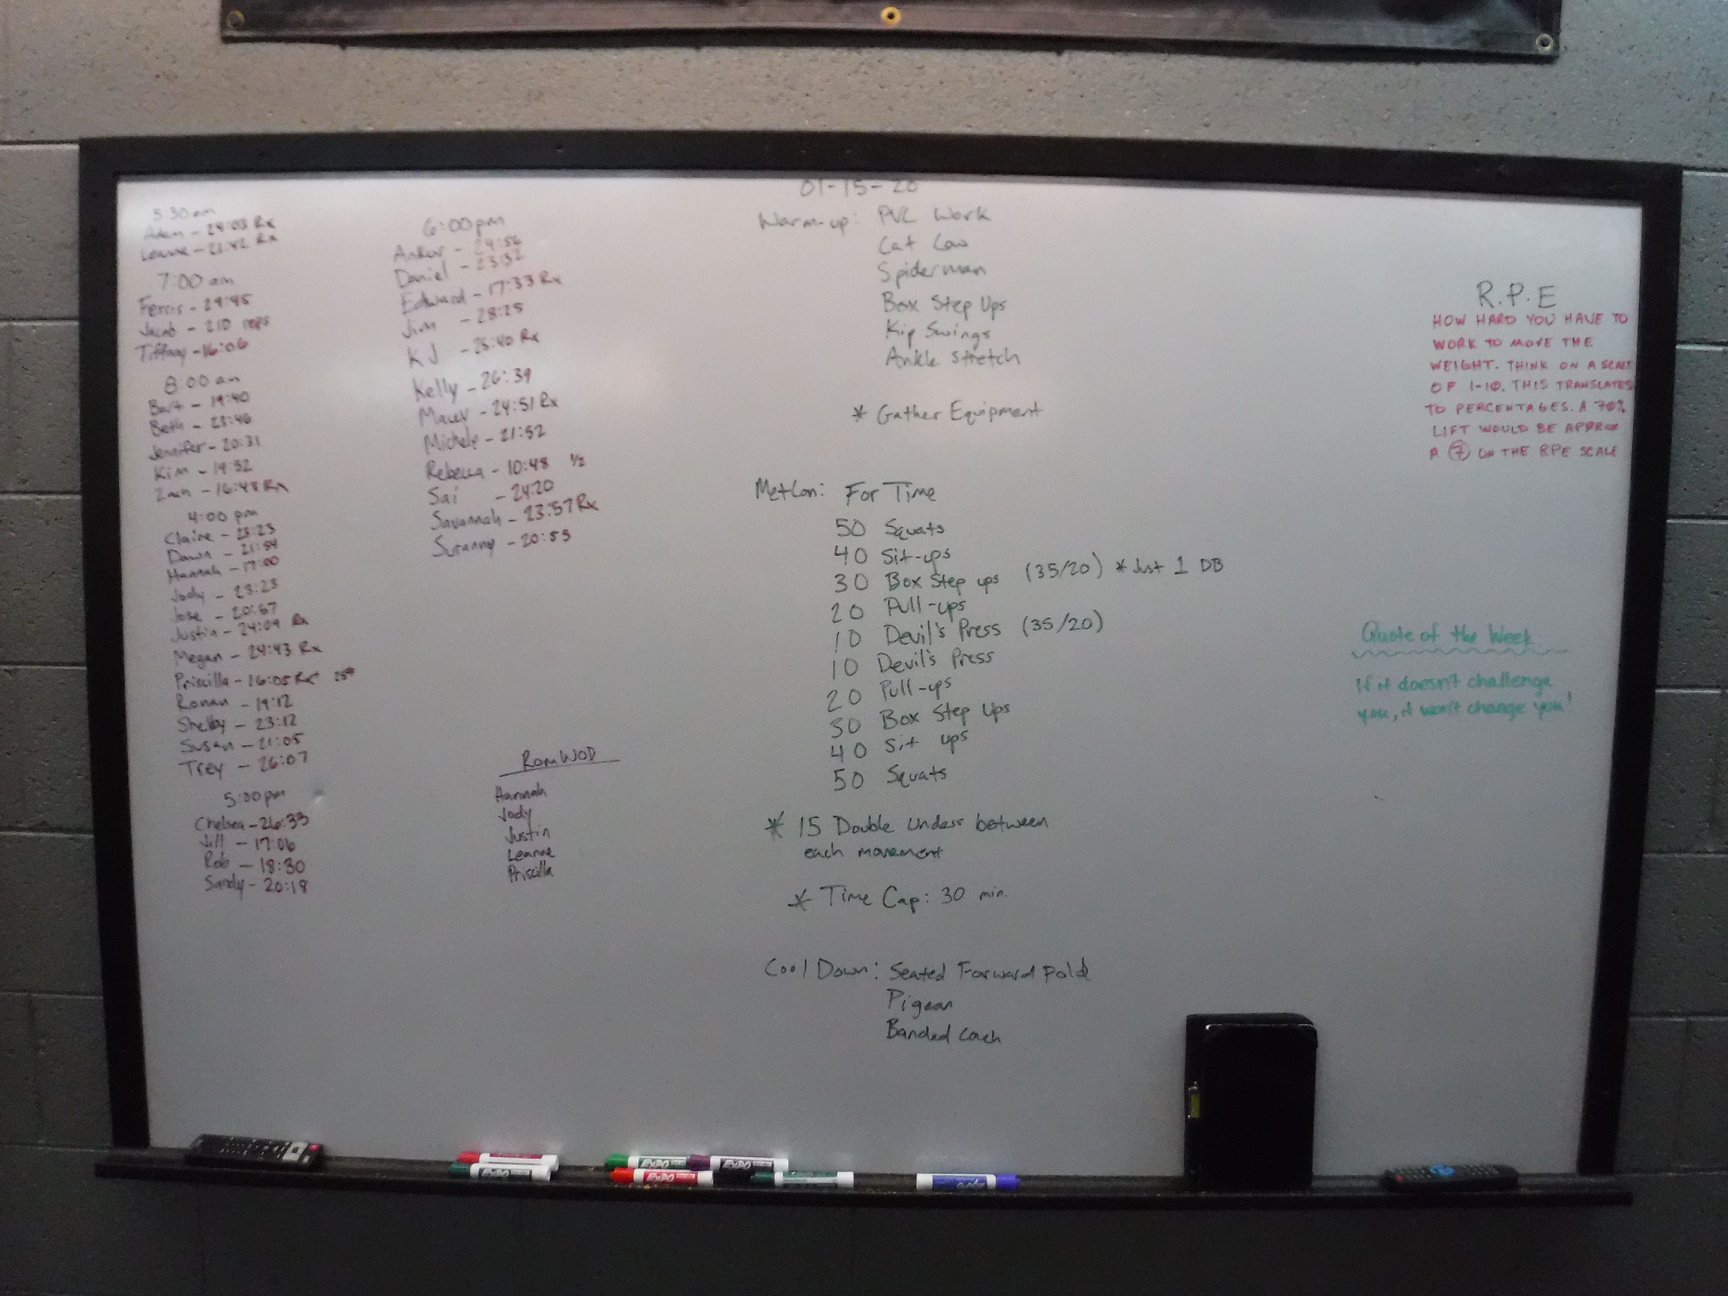 5:30 am
Adam - 24:03 Rx
Leanne - 21:42 Rx
7:00 am
Ferris - 29:45
Jacob - 210 reps
Tiffany - 16:06
8:00 am
Bart - 19:40
Beth - 23:46
Jennifer - 20:31
Kim - 19:32
Zach - 16:48 Rx
4:00 pm
Claire - 23:23
Dawn - 21:54
Hannah - 17:00
Jody - 23:23
Jose - 20:67
Justin - 24:09 Rx
Megan - 24:43 Rx
Priscilla - 26:05 Rx
Ronan - 19:12
Shelby - 23:12
Susan - 21:05
Trey - 26:07
5:00 pm
Chelsea - 26:33
Jill - 17:06
Rob - 18:30
Sandy - 20:19
6:00 pm
Ankur - 24:56
Daniel - 23:32
Edward - 17:33 Rx
Jim - 28:25
KJ - 25:40 Rx
Kelly - 26:39
Macey - 24:51 Rx
Michele - 21:52
Rebecca - 10:48 1/2
Sai - 24:20
Savannah - 23:57 Rx
Suranny - 20:53
RomWOD
Hannah
Jody
Justin
Leanne
Priscilla
01-15-20
Warm-up: PVC Work
Cat Cow
Spiderman
Box Step Ups
Kip Swings
Ankle Stretch
* Gather Equipment
MetCon: For Time
50 Squats
40 Sit-ups
30 Box Step ups (35/20) * Just 1 DB
20 Pull-ups
10 Devil's Press (35/20)
10 Devil's Press
20 Pull-ups
30 Box Step Ups
40 Sit ups
50 Squats
* 15 Double Unders between
each movement
* Time Cap: 30 min.
Cool Down: Seated Forward Fold
Pigeon
Banded Coach
R.P.E
HOW HARD YOU HAVE TO
WORK TO MOVE THE
WEIGHT. THINK ON A SCALE
OF 1-10. THIS TRANSLATES
TO PERCENTAGES. A 70%
LIFT WOULD BE APPROX
A 7 ON THE RPE SCALE
Quote of the Week
If it doesn't challenge
you, it won't change you!
EXPO
EXPO
EXPO